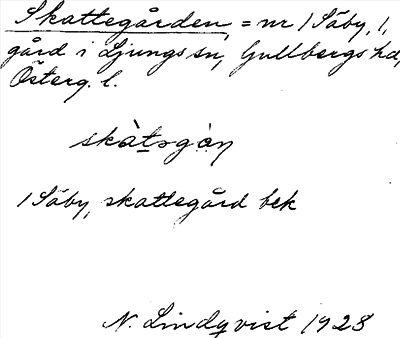 Skattegården, = nr 1 Säby, 1,
gård i Ljungs sn, Gullbergs hd,
Österg. l.
skàtəgàṇ
1 Säby, skattegård bek
N. Lindqvist 1928